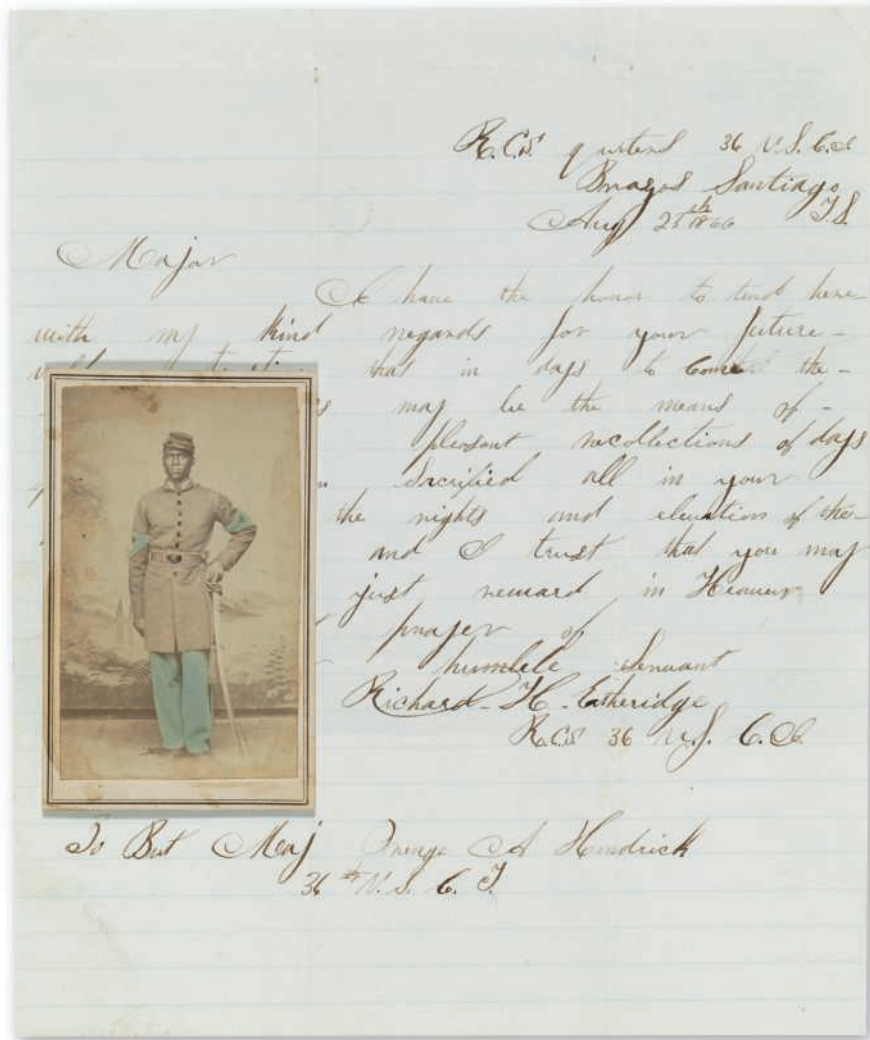 R.C.S. 36 U.S.C.I.
Brazos Santiago
Aug 25th 1866 T.S.
Major
I have the honor to tend here-
with my kind regards for your future-
that in days to come the-
may be the means of-
pleasant recollections of days
Sacrified all in your
the rights and elevation of the-
and I trust that you may
just reward in Heaven
prayer of
humble Servant
Richard-H-Eatheridge
R.C.S. 36 U.S.C.I.
To But Maj Orange A Hendrick
36th U.S.C.T.